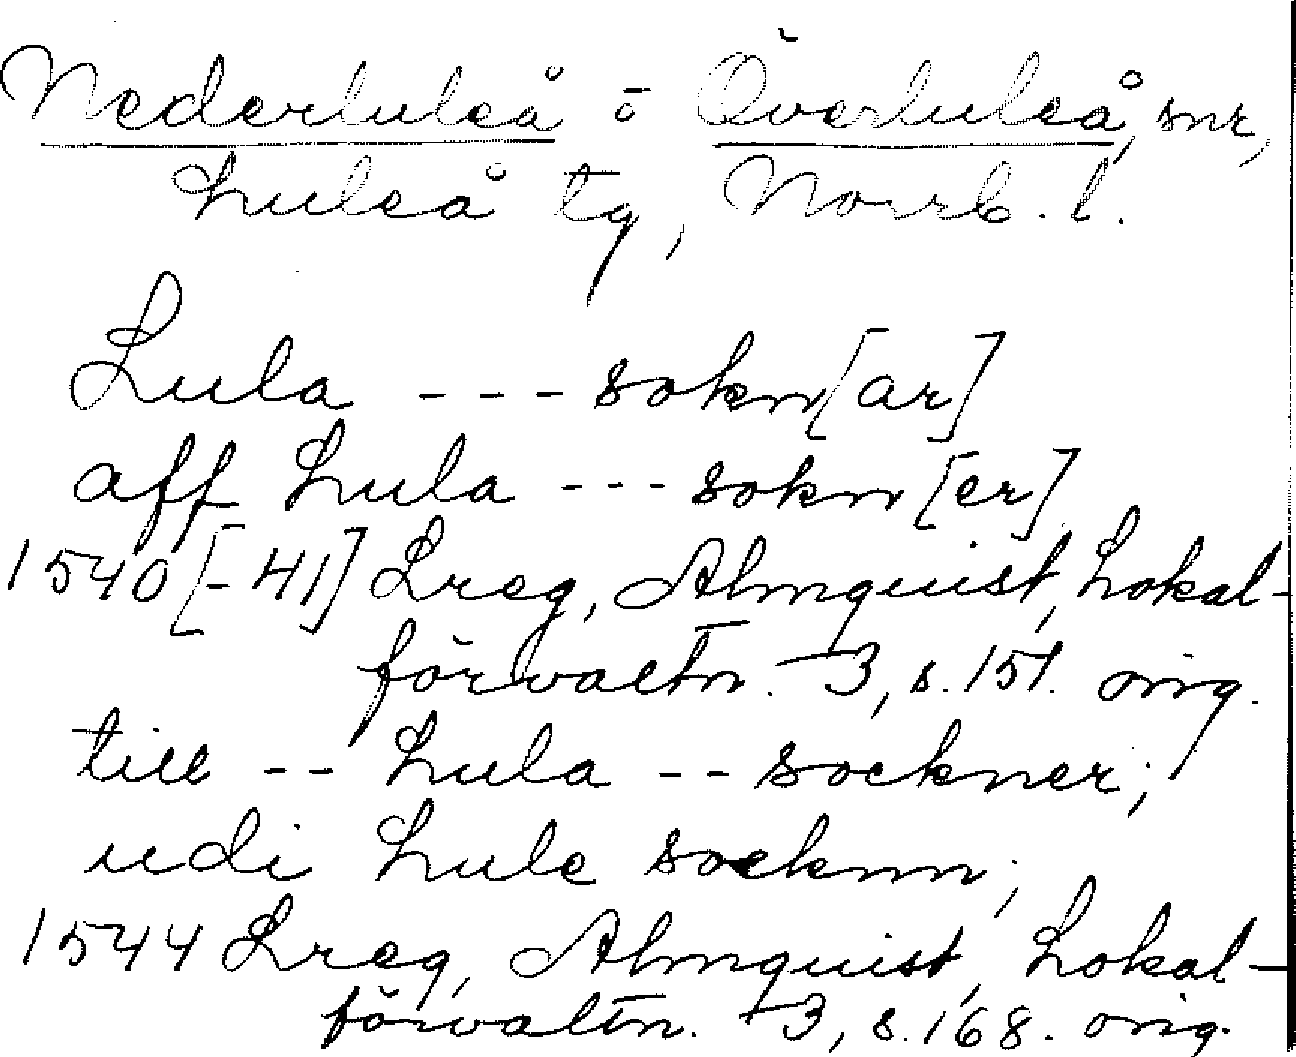 Nederluleå o Överluleå, snr,
Luleå tg, Norrb. l.
Lula --- sokn[ar]
aff Lula --- sokn[er]
1540[-41] Lreg, Almquist, Lokal-
förvaltn. 3, s. 151. orig.
till -- Lula -- sockner;
udi Lule socknn;
1544 Lreg, Almquist, Lokal-
förvaltn. 3, s. 168. orig.